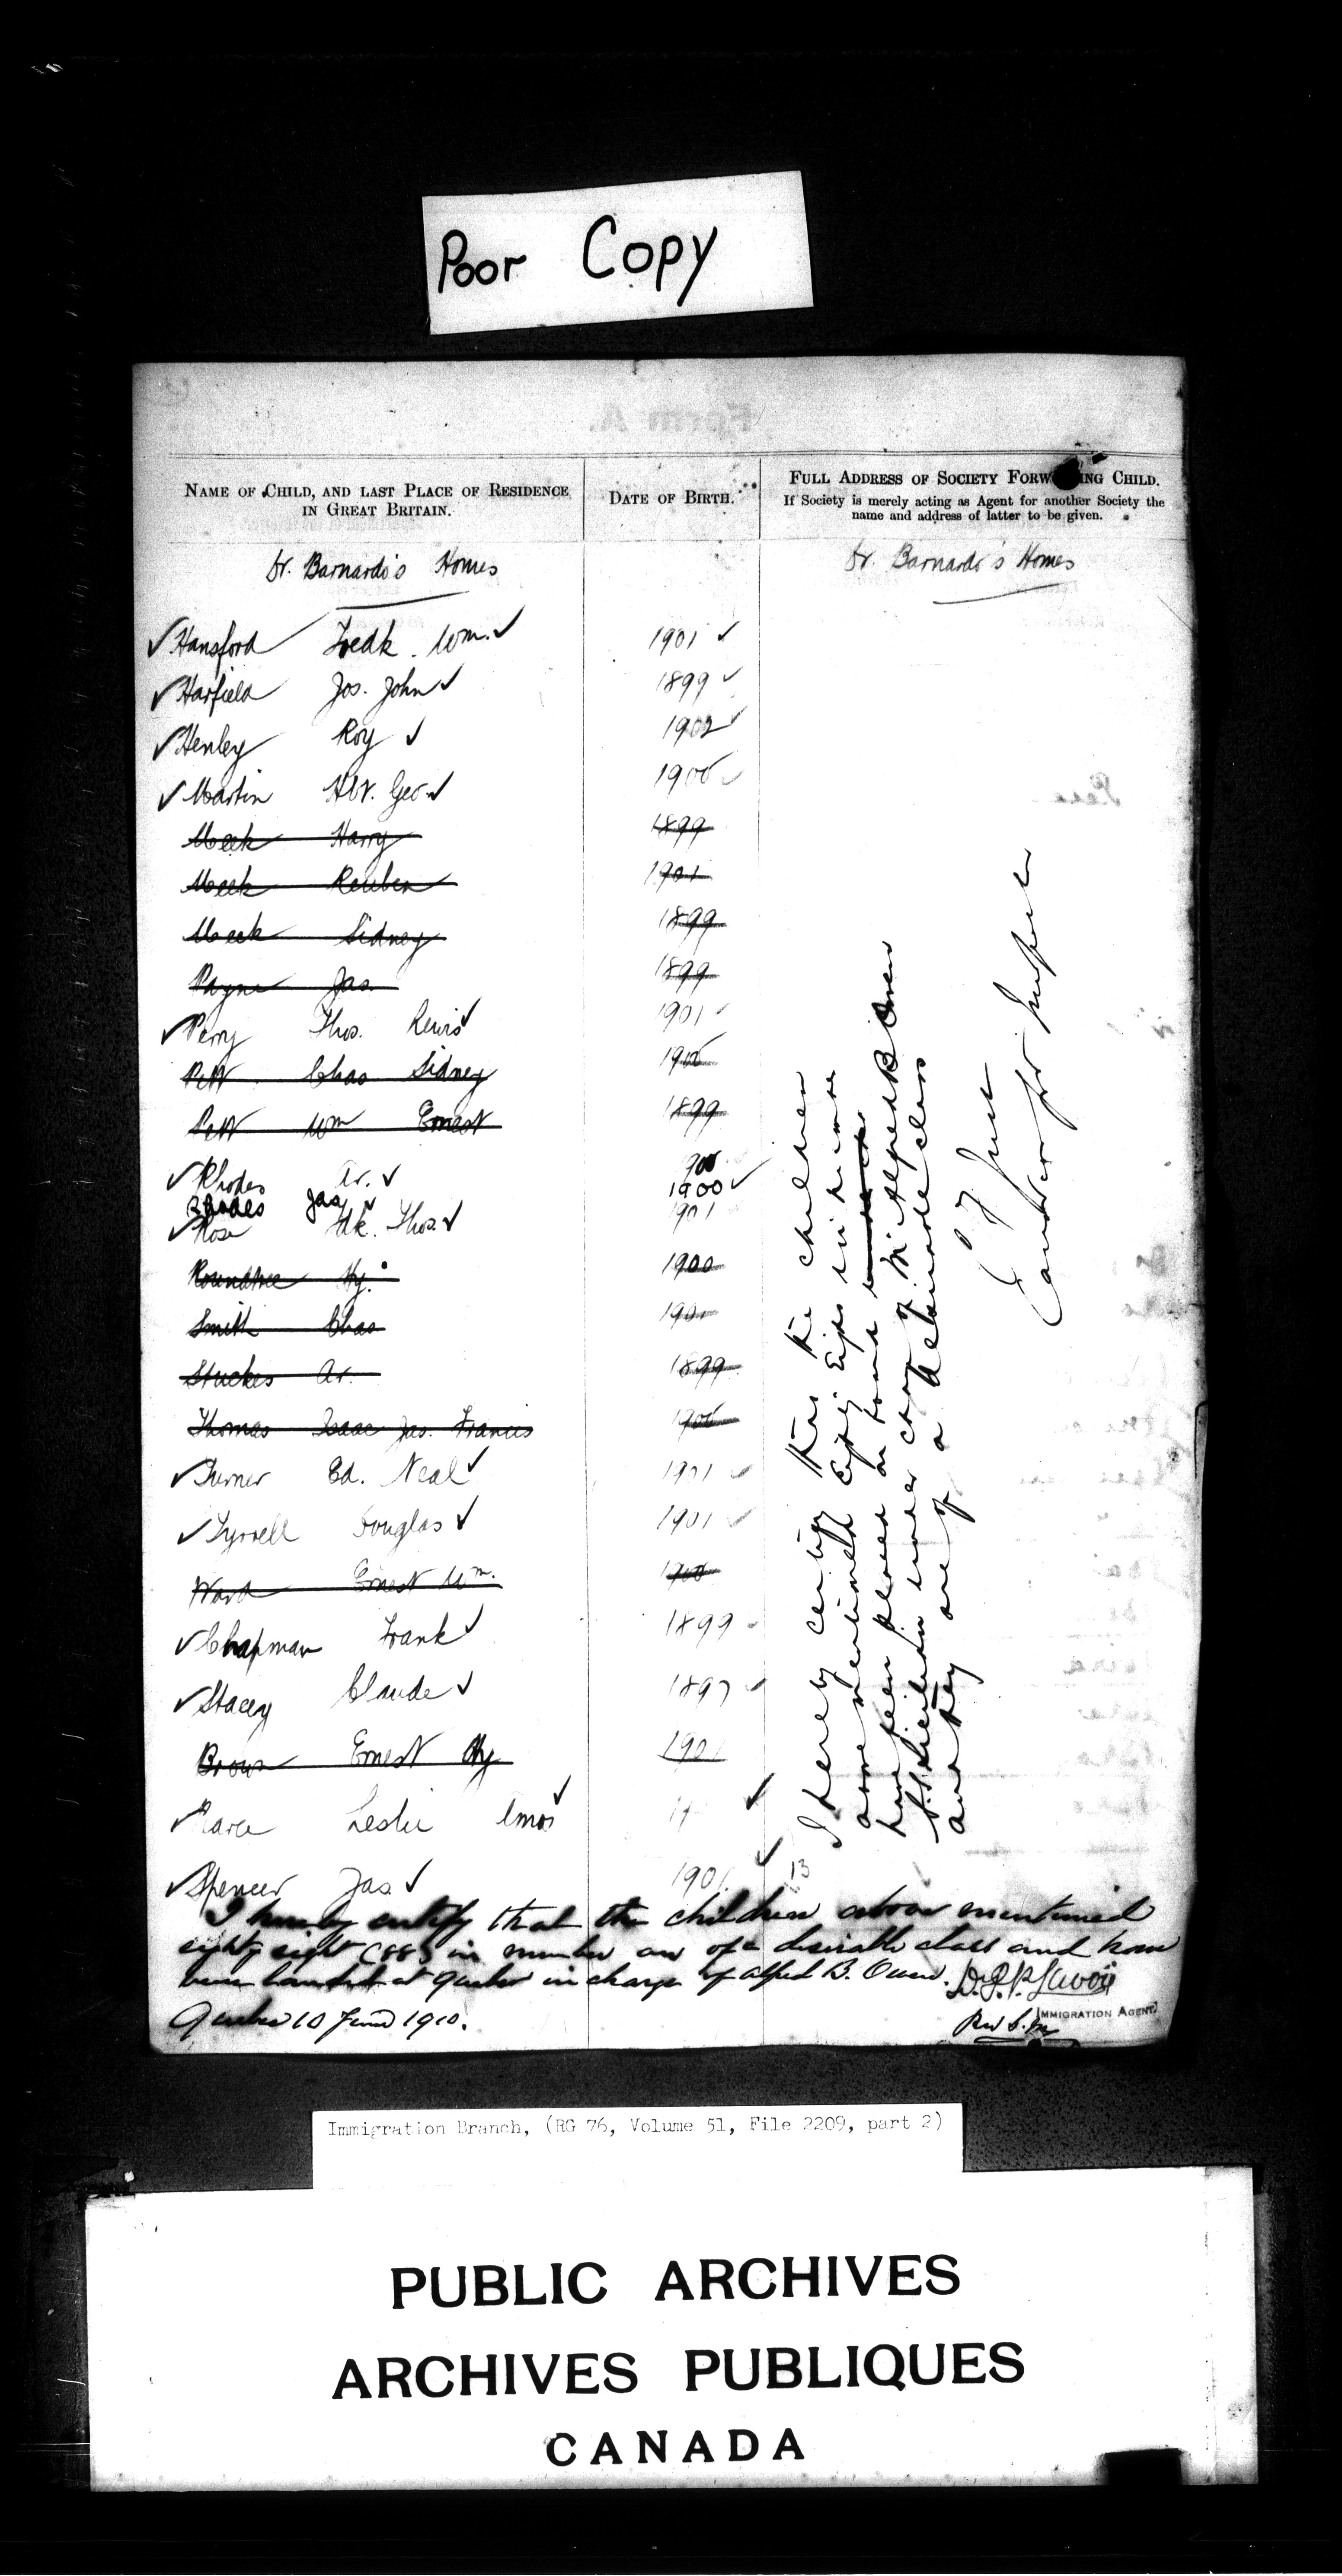 Poor Copy
NAME OF CHILD, AND LAST PLACE OF RESIDENCE IN GREAT BRITAIN.
DATE OF BIRTH.
FULL ADDRESS OF SOCIETY FORW ING CHILD.
If Society is merely acting as Agent for another Society the name and address of latter to be given.
Dr. Barnardo's Homes
Dr. Barnardo's Homes
Hansford Fredk. Wm. 1901
Harfield Jos. John 1899
Henley Roy 1902
Martin Geo. 1900
Meek Harry 1899
Meek Reuben 1901
Meek Sidney 1899
Payne Jas. 1899
Perry Thos. Lewis 1901
Pett Chas Sidney 1900
Pett Wm Ernest 1899
Rhodes Ar. 1900
Rhodes Jas 1900
Rose Fdk. Thos. 1901
Roundtree Hy. 1900
Smith Chas 1901
Stuckes Ar. 1899
Thomas Isaac Jas. Francis 1900
Turner Ed. Neal 1901
Tyrrell Douglas 1901
Ward Ernest Wm. 1900
Chapman Frank 1899
Stacey Claude 1897
Brown Ernest Hy 1901
Leslie Amos
Spencer Jas. 1901
13
I hereby certify that the children
above mentioned Eighty Eight in number
have been placed on board
S.S. Sicilian under charge of Mr Alfred B Owen
and they are of a desirable class
I hereby certify that the children above mentioned
eighty eight (88) in number are of a desirable class and have
been landed at Quebec in charge of Alfred B. Owen.
IMMIGRATION AGENT
Quebec 10 June 1910.
Immigration Branch, (RG 76, Volume 51, File 2209, part 2)
PUBLIC ARCHIVES
ARCHIVES PUBLIQUES
CANADA